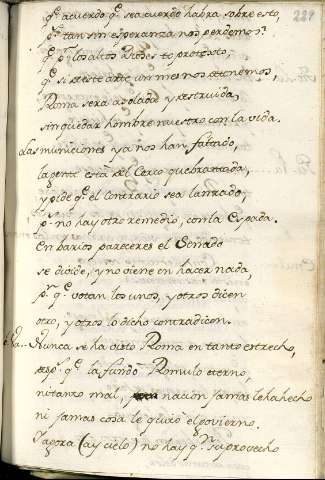 221
q.e acuerdo q.e sea cuerdo habra sobre esto,
p.r tan sin esperanza nos perdemos?
q.e p.r los altos Dioses te protexto,
q.e si este arte un mes nos detenemos,
Roma será asolada y destruida,
sin quedar hombre nuestro con la vida.
Las municiones ya nos han faltado,
la gente está del Cerco quebrantada,
y pide q.e el contrario sea lanzado,
p.s no hay otro remedio, con la Espada.
En barios pareceres el Senado
se divide, y no viene en hacer nada,
p.r q.e votan los unos, y otros dicen
otro, y otros lo dicho contradicen.
Nunca se ha visto Roma en tanto estrecho,
desp.s q.e la fundó Romulo eterno,
ni tanto mal, nacion jamas le ha hecho
ni jamas cosa le quitó el govierno.
Y agora (ay cielo) no hay q.n su provecho